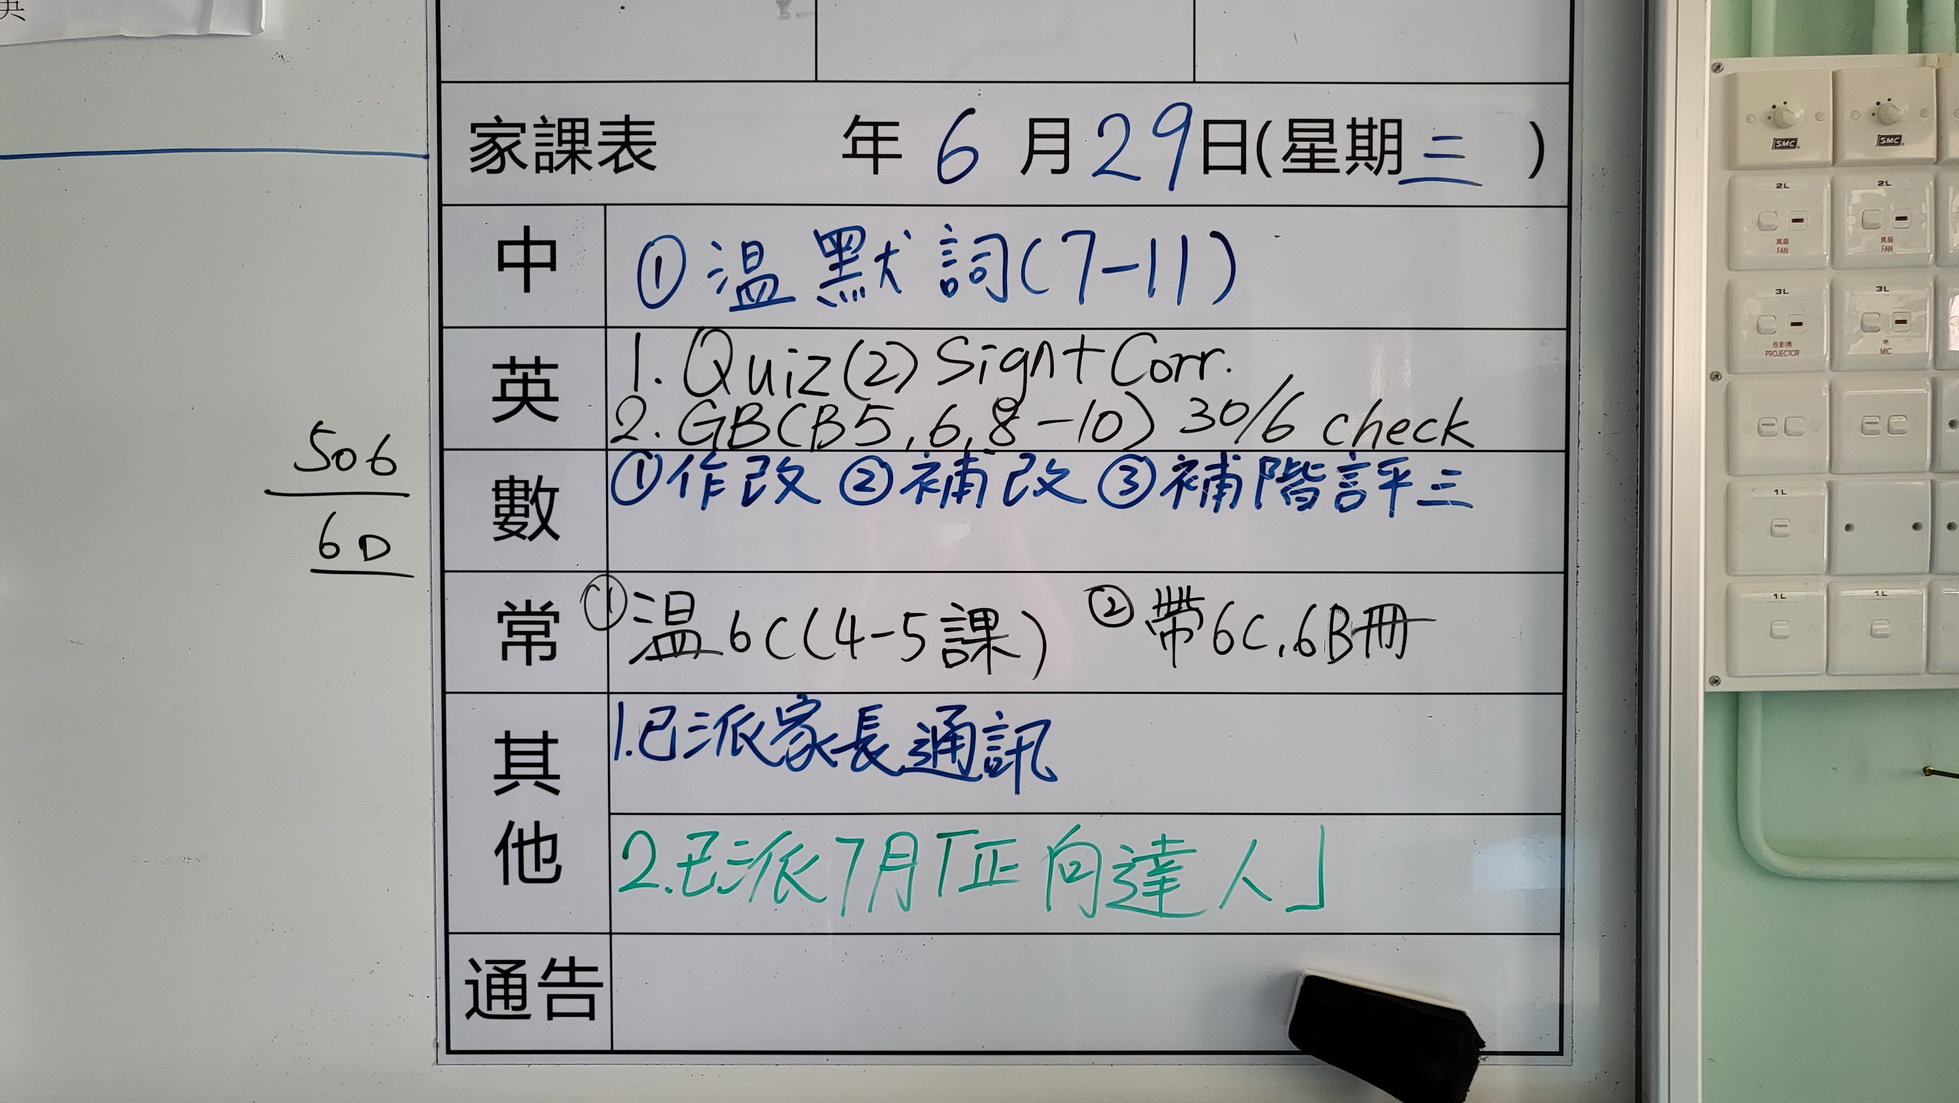 家課表 年 6 月 29 日(星期 三 )
中 ① 溫默詞(7-11)
英 1. Quiz(2) Sign+Corr.
2. GB(B5,6,8-10) 30/6 check
數 ①作改 ②補改 ③補階評三
常 ①溫6C(4-5課) ②帶6C,6B冊
其他 1.已派家長通訊
2.已派7月「正向達人」
通告
506
6D
SMC
SMC
2L
2L
風扇
FAN
風扇
FAN
3L
3L
投影機
PROJECTOR
咪
MIC
1L
1L
1L